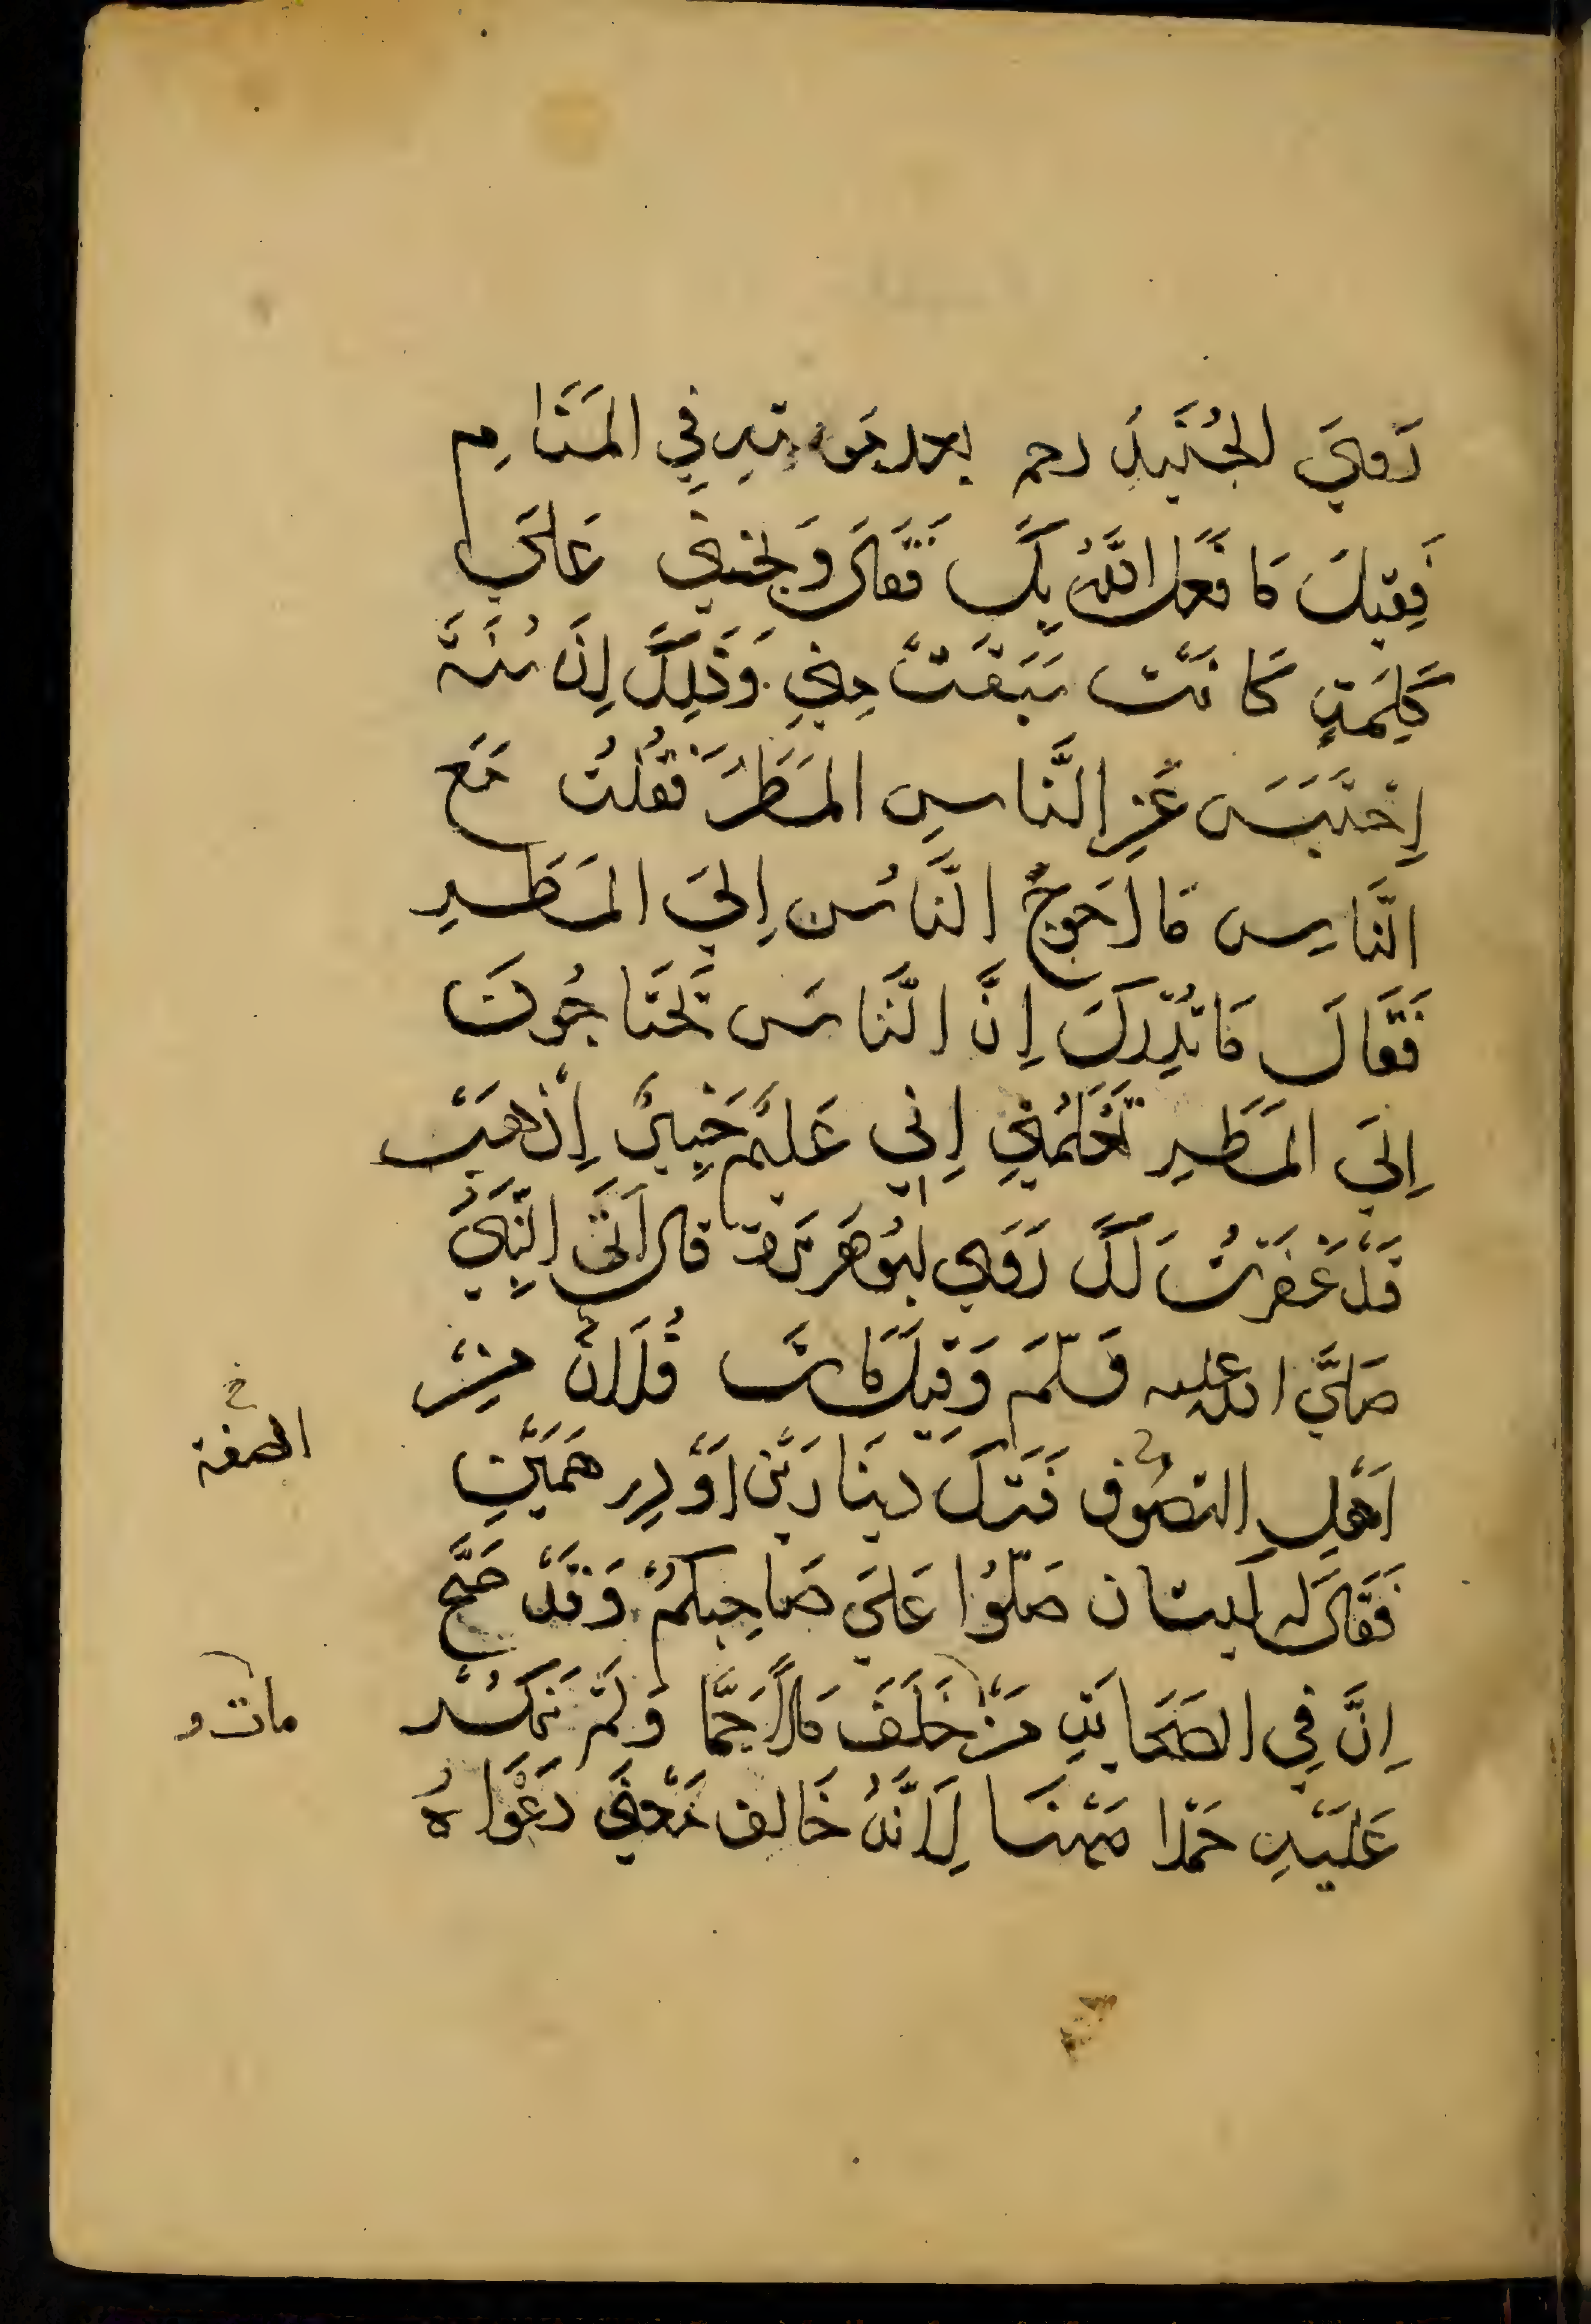 رَوِيَ الجُنَيْد رحمه بعد موته في المَنَامِ
فَقِيلَ مَا فَعَلَ اللَّهُ بِكَ فَقَالَ وَبخني عَلَى
كَلِمَةٍ كَانَتْ سَبَقَتْ مِنِّي وَذَلِكَ اِنَّ سَنَةً
اِحْتَبَسَ عَنِ النَّاسِ المَطَرُ فَقُلْتُ مَعَ
النَّاسِ مَا اَحْوَجَ النَّاسَ اِلَى المَطَرِ
فَقَالَ مَا يُدْرِيكَ اِنَّ النَّاسَ تَحْتَاجُونَ
اِلَى المَطَرِ تُعَلِّمُنِي اِنِّي عَلِيمٌ خَبِيرٌ اِذْهَبْ
قَدْ غَفَرْتُ لَكَ رَوَى ابُو هُرَيْرَة قَالَ اَتَى النَّبِيَّ
صَلَّى الله عليه وَسَلَّمَ وَقِيلَ مَاتَ فُلَانٌ مِنْ
اَهْلِ التصوف فَتَرَكَ دينَارَيْنِ اَوْ دِرهَمَيْنِ
الصفة خ
فَقَالَ لَه كيتان صَلُّوا عَلَى صَاحِبِكُمْ وَقَدْ صَحَّ
اِنَّ فِي الصَحَابَةِ مَنْ خَلَفَ مَالًا جَمًّا وَلَمْ
مات و
عَلَيْهِ لِاَنَّهُ خَالَف مَعْنَى دَعْوَاهُ